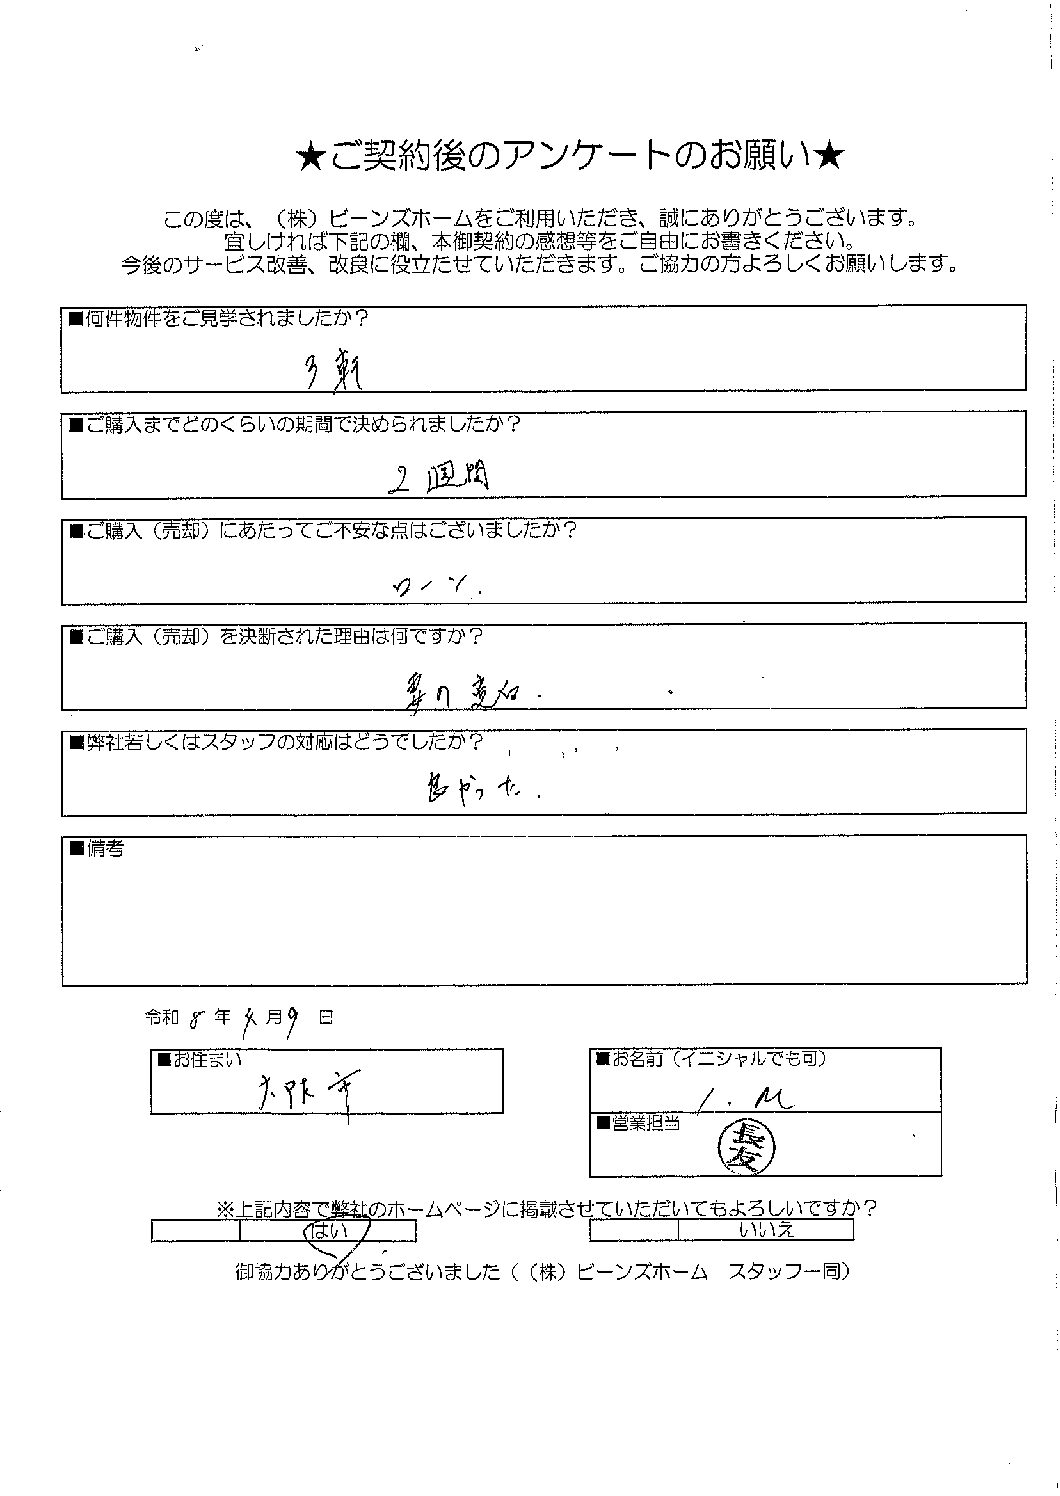 ★ご契約後のアンケートのお願い★
この度は、（株）ビーンズホームをご利用いただき、誠にありがとうございます。
宜しければ下記の欄、本御契約の感想等をご自由にお書きください。
今後のサービス改善、改良に役立たせていただきます。ご協力の方よろしくお願いします。
■何件物件をご見学されましたか？
3軒
■ご購入までどのくらいの期間で決められましたか？
2週間
■ご購入（売却）にあたってご不安な点はございましたか？
ローン.
■ご購入（売却）を決断された理由は何ですか？
妻の
■弊社若しくはスタッフの対応はどうでしたか？
良かった.
■備考
令和 8 年 4 月 9 日
■お住まい
大阪市
■お名前（イニシャルでも可）
I. M
■営業担当
長友
※上記内容で弊社のホームページに掲載させていただいてもよろしいですか？
はい
いいえ
御協力ありがとうございました（（株）ビーンズホーム　スタッフ一同）